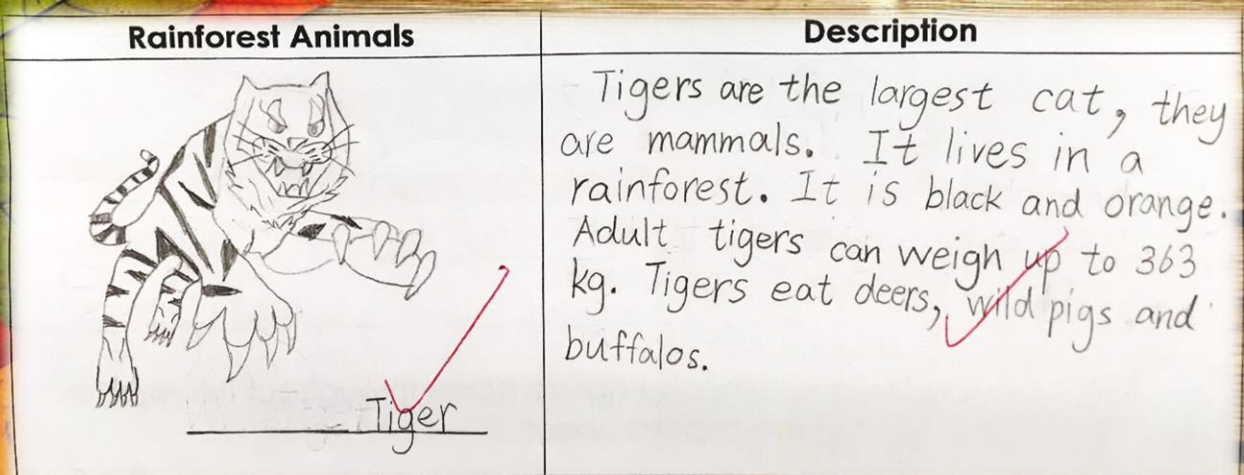 Rainforest Animals
Description
Tigers are the largest cat, they
are mammals. It lives in a
rainforest. It is black and orange.
Adult tigers can weigh up to 363
kg. Tigers eat deers, wild pigs and
buffalos.
Tiger